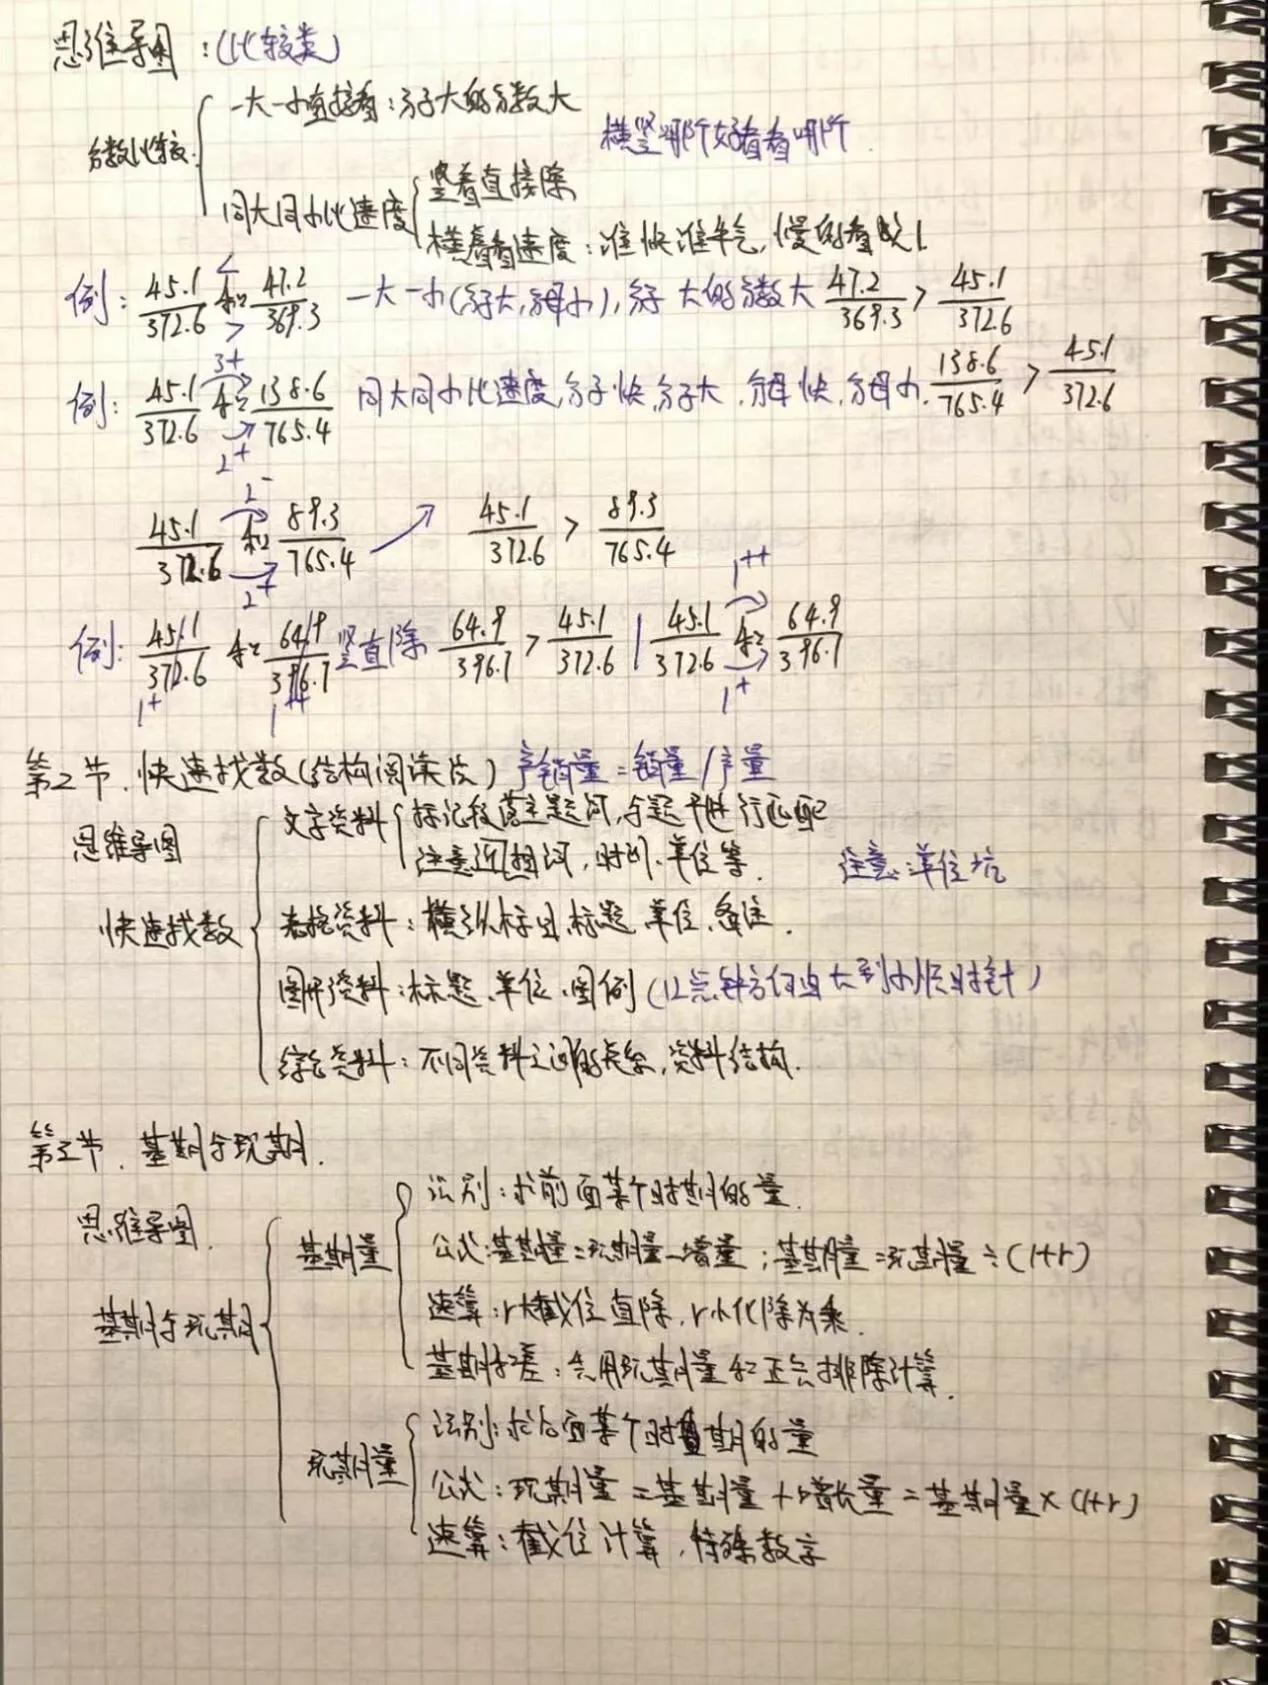 思维导图:(比较类)
分数比较:
一大一小直接看:分子大的分数大
横竖哪个好看看哪个.
同大同小比速度
竖着直接除
横着看速度:谁快谁牛气,慢的看成1
例: 45.1/372.6 < 和 > 47.2/369.3 一大一小(分子大,分母小),分子大的分数大 47.2/369.3 > 45.1/372.6
例: 45.1/372.6 3+ 和 2+ 138.6/765.4 同大同小比速度,分子快,分子大.分母快,分母小. 138.6/765.4 > 45.1/372.6
45.1/372.6 2- 和 2+ 89.3/765.4 → 45.1/372.6 > 89.3/765.4
例: 45.1/372.6 和 64.9/396.7 竖直除 64.9/396.7 > 45.1/372.6 | 45.1/372.6 1++ 和 1+ 64.9/396.7
1+ 1++
第2节.快速找数(结构阅读法) 产销量=销量/产量
思维导图
快速找数
文字资料
标记段落主题词,与题干进行匹配
注意近义词,时间、单位等.
注意:单位坑
表格资料:横纵标目、标题、单位、备注.
图形资料:标题、单位、图例(12点钟方向由大到小顺时针)
综合资料:不同资料之间的关系,资料结构.
第三节.基期与现期.
思维导图.
基期与现期
基期量
识别:求前面某个时期的量.
公式:基期量=现期量-增量;基期量=现期量÷(1+r)
速算:r大截位直除,r小化除为乘.
基期和差:会用现期量和正负排除计算.
现期量
识别:求后面某个时期的量
公式:现期量=基期量+增长量=基期量×(1+r)
速算:截位计算,特殊数字